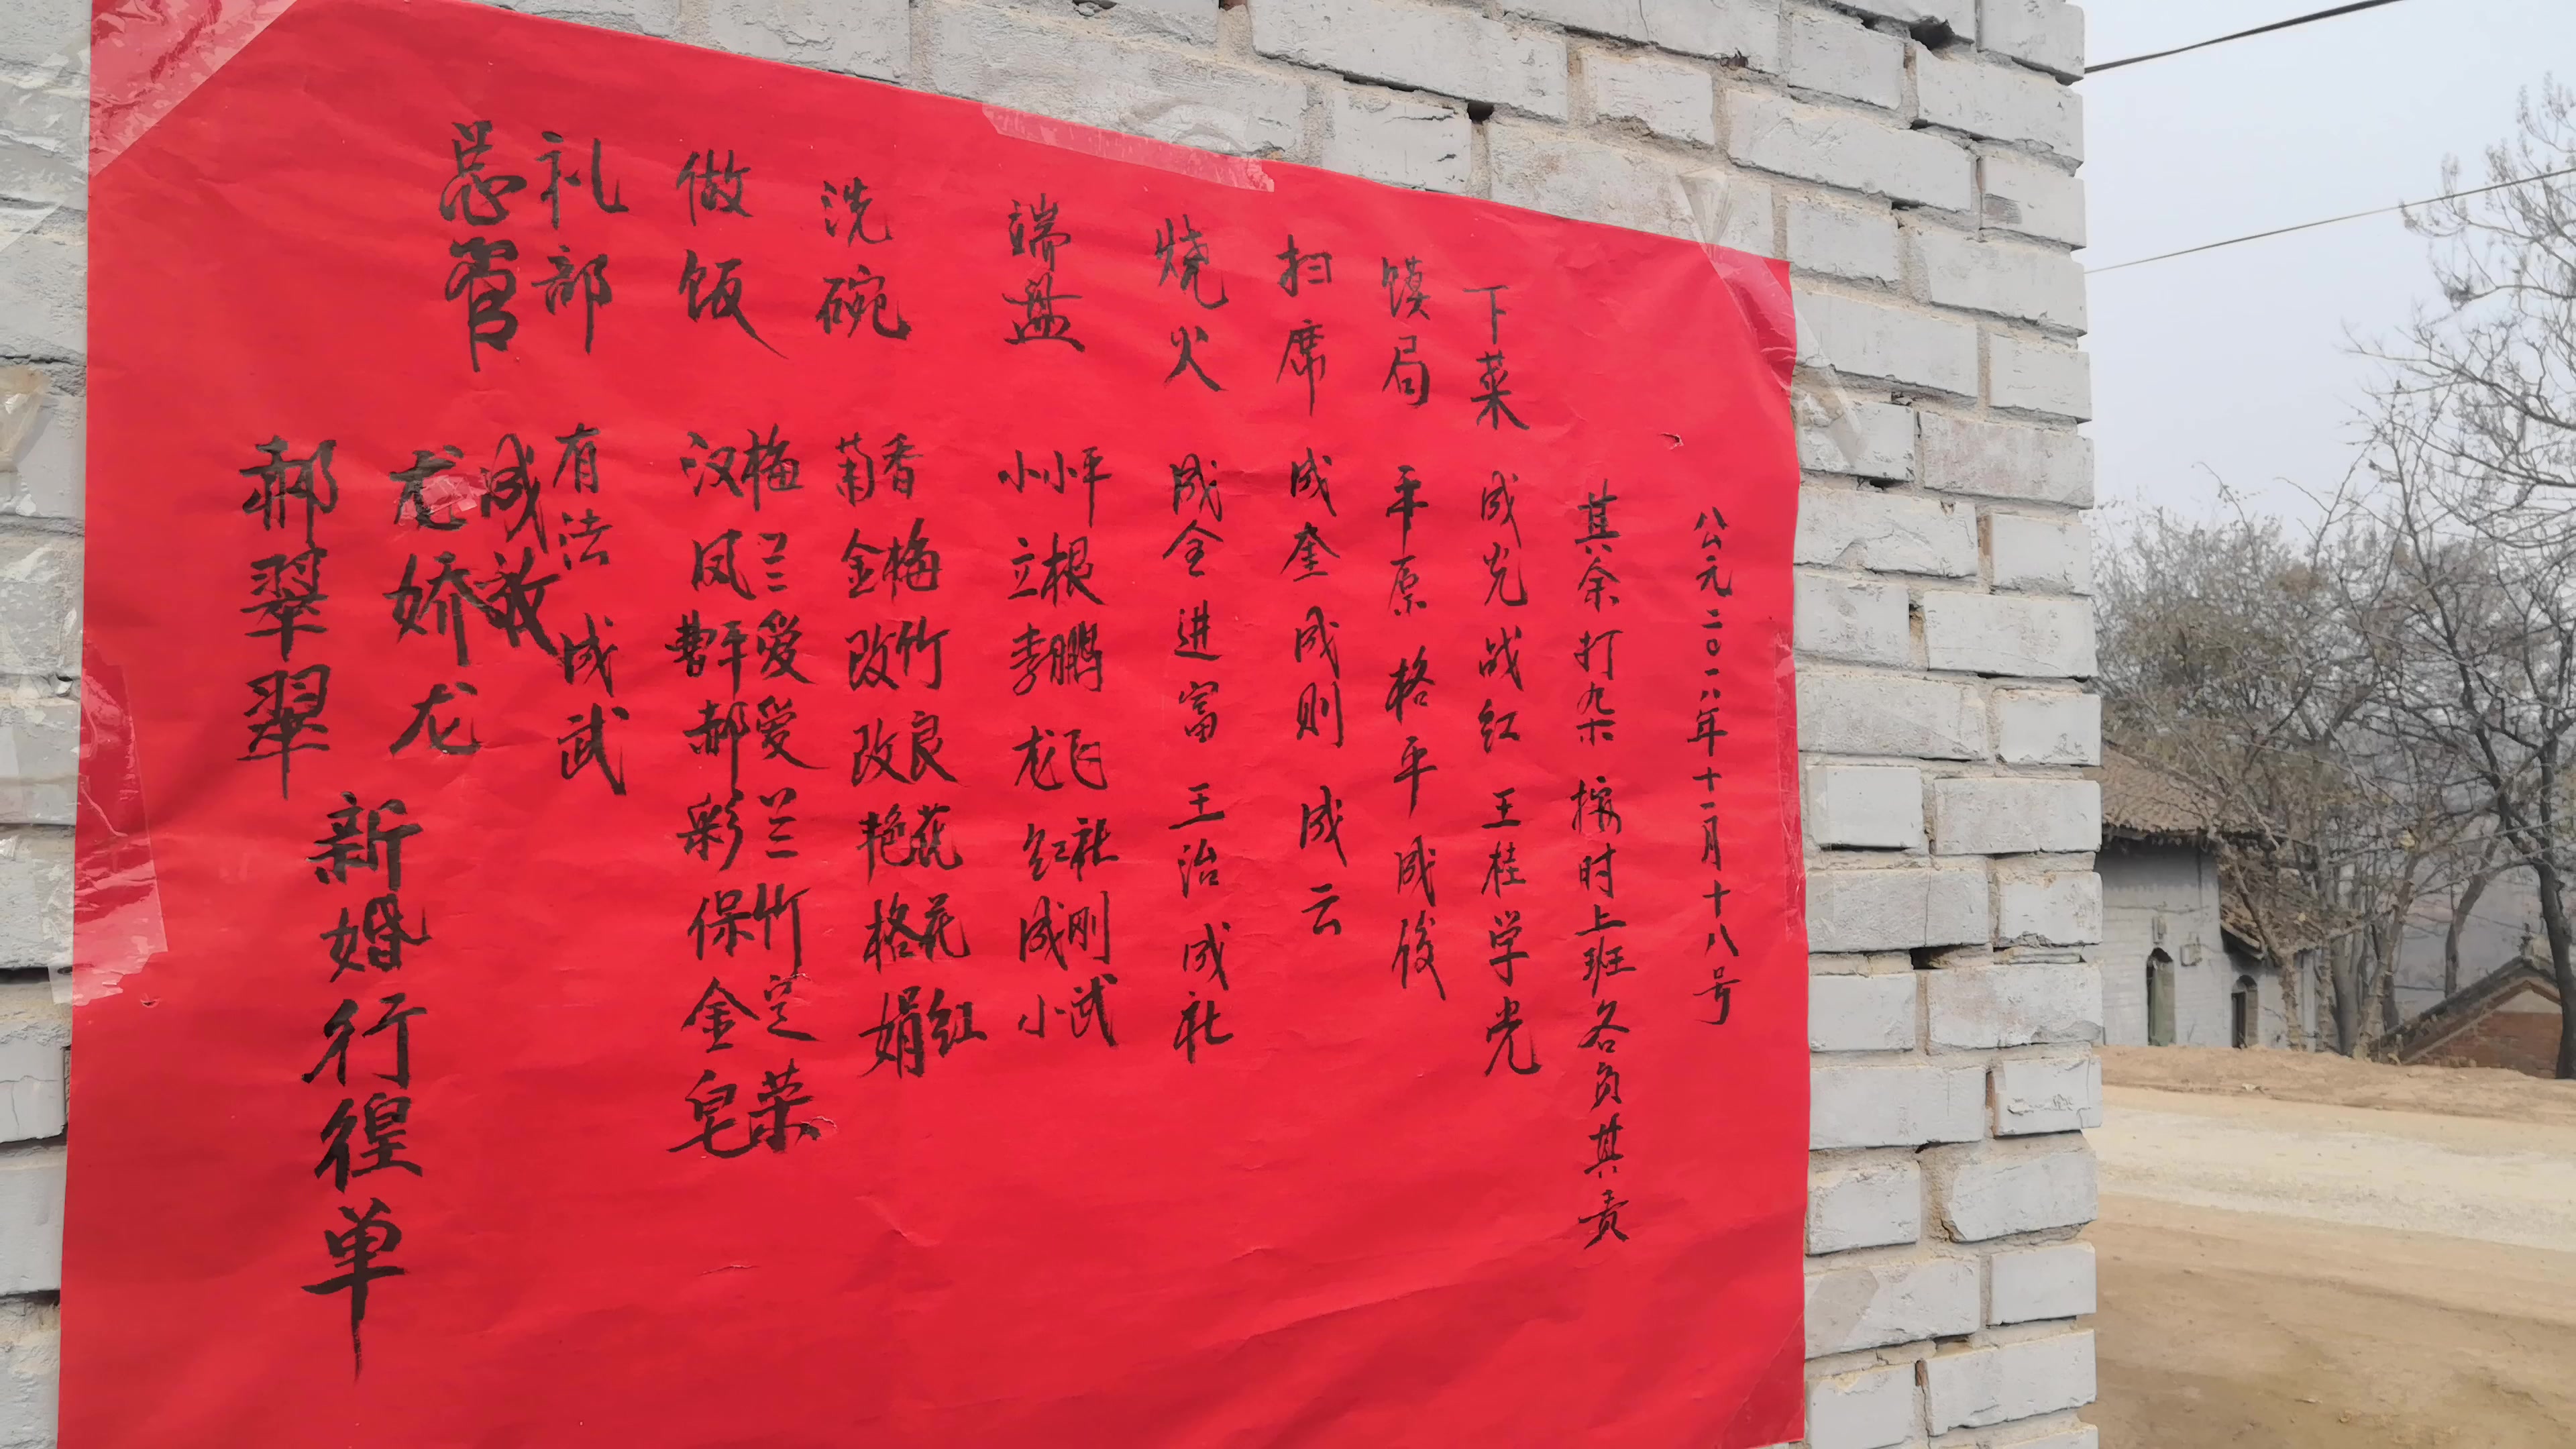 郝翠翠
龙娇龙
新婚行徨单
总管 成
礼部 有法 成武
做饭 汉梅 凤兰 曹平爱 郝爱 彩兰 保竹 金定 皂荣
洗碗 菊香 金梅 改竹 改良 艳花 格花 娟红
端盘 小小平 立根 李鹏 龙飞 红社 成刚 小武
烧火 成全 进富 王治 成社
扫席 成奎 成则 成云
馍局 平原 格平 成俊
下菜 成光 战红 王桂 学光
其余打杂 按时上班各负其责
公元二0一八年十一月十八号